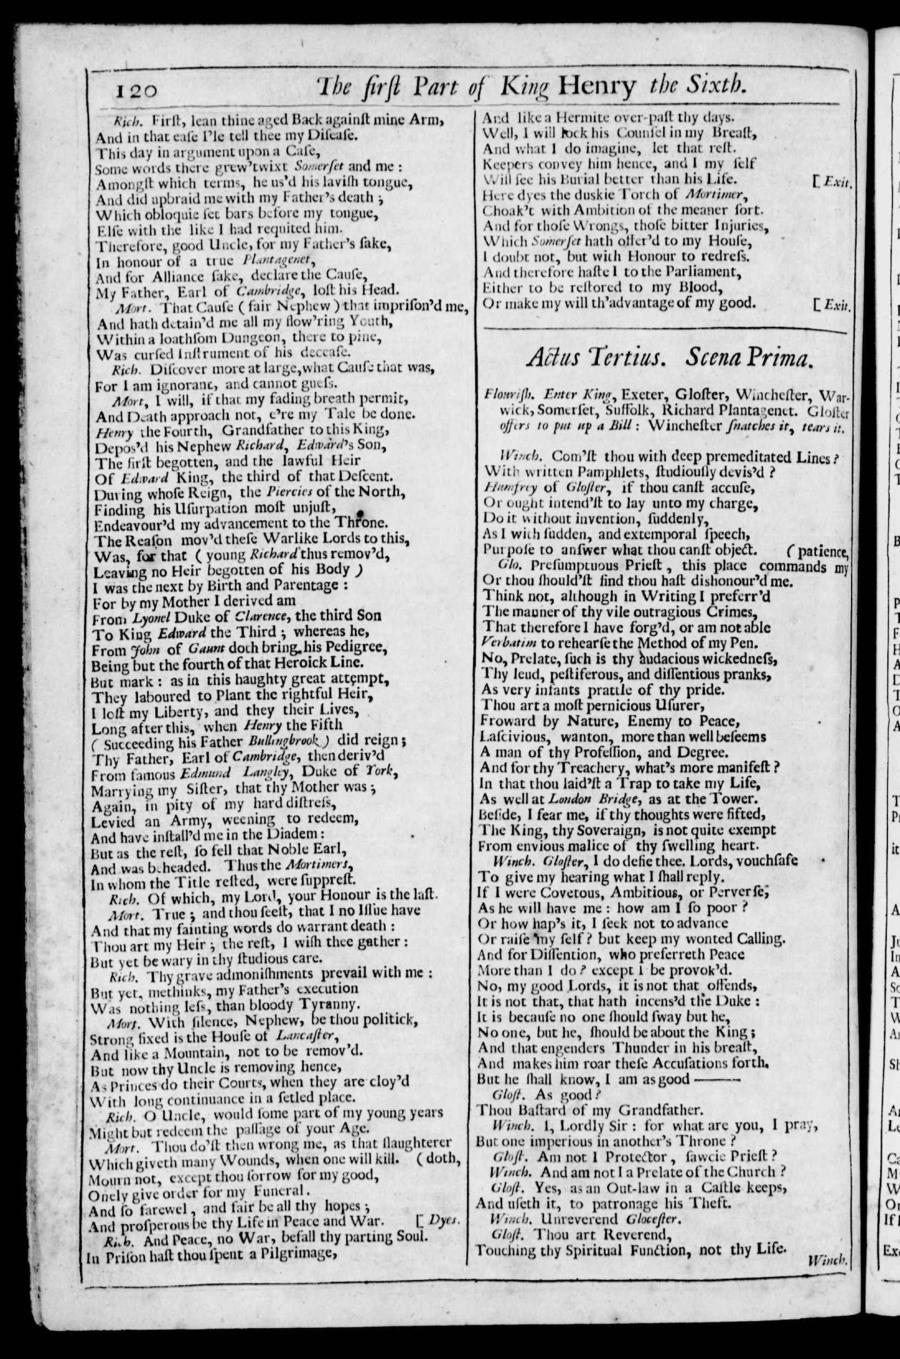 120
The firſt Part of King Henry the Sixth.
Rich. Firſt, lean thine aged Back againſt mine Arm,
And in that eaſe I'le tell thee my Diſeaſe.
This day in argument upon a Caſe,
Some words there grew 'twixt Somerſet and me :
Amongſt which terms, he us'd his laviſh tongue,
And did upbraid me with my Father's death ;
Which obloquie ſet bars before my tongue,
Elſe with the like I had requited him.
Therefore, good Uncle, for my Father's ſake,
In honour of a true Plantagenet,
And for Alliance ſake, declare the Cauſe,
My Father, Earl of Cambridge, loſt his Head.
Mort. That Cauſe ( fair Nephew ) that impriſon'd me,
And hath detain'd me all my flow'ring Youth,
Within a loathſom Dungeon, there to pine,
Was curſed Inſtrument of his deceaſe.
Rich. Diſcover more at large, what Cauſe that was,
For I am ignorant, and cannot gueſs.
Mort, I will, if that my fading breath permit,
And Death approach not, e're my Tale be done.
Henry the Fourth, Grandfather to this King,
Depos'd his Nephew Richard, Edward's Son,
The firſt begotten, and the lawful Heir
Of Edward King, the third of that Deſcent.
During whoſe Reign, the Piercies of the North,
Finding his Uſurpation moſt unjuſt,
Endeavour'd my advancement to the Throne.
The Reaſon mov'd theſe Warlike Lords to this,
Was, for that ( young Richard thus remov'd,
Leaving no Heir begotten of his Body )
I was the next by Birth and Parentage :
For by my Mother I derived am
From Lyonel Duke of Clarence, the third Son
To King Edward the Third ; whereas he,
From John of Gaunt doth bring his Pedigree,
Being but the fourth of that Heroick Line.
But mark : as in this haughty great attempt,
They laboured to Plant the rightful Heir,
I loſt my Liberty, and they their Lives,
Long after this, when Henry the Fifth
( Succeeding his Father Bullingbrook ) did reign ;
Thy Father, Earl of Cambridge, then deriv'd
From famous Edmund Langley, Duke of York,
Marrying my Siſter, that thy Mother was ;
Again, in pity of my hard diſtreſs,
Levied an Army, weening to redeem,
And have inſtall'd me in the Diadem :
But as the reſt, ſo fell that Noble Earl,
And was beheaded. Thus the Mortimers,
In whom the Title reſted, were ſuppreſt.
Rich. Of which, my Lord, your Honour is the laſt.
Mort. True ; and thou ſeeſt, that I no Iſſue have
And that my fainting words do warrant death :
Thou art my Heir ; the reſt, I wiſh thee gather :
But yet be wary in thy ſtudious care.
Rich. Thy grave admoniſhments prevail with me :
But yet, methinks, my Father's execution
Was nothing leſs, than bloody Tyranny.
Mort. With ſilence, Nephew, be thou politick,
Strong fixed is the Houſe of Lancaſter,
And like a Mountain, not to be remov'd.
But now thy Uncle is removing hence,
As Princes do their Courts, when they are cloy'd
With long continuance in a ſetled place.
Rich. O Uncle, would ſome part of my young years
Might but redeem the paſſage of your Age.
Mort. Thou do'ſt then wrong me, as that ſlaughterer
Which giveth many Wounds, when one will kill. ( doth,
Mourn not, except thou ſorrow for my good,
Onely give order for my Funeral.
And ſo farewel, and fair be all thy hopes ;
And proſperous be thy Life in Peace and War. [ Dyes.
Rich. And Peace, no War, befall thy parting Soul.
In Priſon haſt thou ſpent a Pilgrimage,
And like a Hermite over-paſt thy days.
Well, I will lock his Counſel in my Breaſt,
And what I do imagine, let that reſt.
Keepers convey him hence, and I my ſelf
Will ſee his Burial better than his Life. [ Exit.
Here dyes the duskie Torch of Mortimer,
Choak't with Ambition of the meaner ſort.
And for thoſe Wrongs, thoſe bitter Injuries,
Which Somerſet hath offer'd to my Houſe,
I doubt not, but with Honour to redreſs.
And therefore haſte I to the Parliament,
Either to be reſtored to my Blood,
Or make my will th'advantage of my good. [ Exit.
Actus Tertius. Scena Prima.
Flouriſh. Enter King, Exeter, Gloſter, Wincheſter, War-
wick, Somerſet, Suffolk, Richard Plantagenet. Gloſter
offers to put up a Bill : Wincheſter ſnatches it, tears it.
Winch. Com'ſt thou with deep premeditated Lines ?
With written Pamphlets, ſtudiouſly devis'd ?
Humfrey of Gloſter, if thou canſt accuſe,
Or ought intend'ſt to lay unto my charge,
Do it without invention, ſuddenly,
As I with ſudden, and extemporal ſpeech,
Purpoſe to anſwer what thou canſt object. ( patience,
Glo. Preſumptuous Prieſt, this place commands my
Or thou ſhould'ſt find thou haſt dishonour'd me.
Think not, although in Writing I preferr'd
The manner of thy vile outragious Crimes,
That therefore I have forg'd, or am not able
Verbatim to rehearſe the Method of my Pen.
No, Prelate, ſuch is thy audacious wickedneſs,
Thy leud, peſtiferous, and diſſentious pranks,
As very infants prattle of thy pride.
Thou art a moſt pernicious Uſurer,
Froward by Nature, Enemy to Peace,
Laſcivious, wanton, more than well beſeems
A man of thy Profeſſion, and Degree.
And for thy Treachery, what's more manifeſt ?
In that thou laid'ſt a Trap to take my Life,
As well at London Bridge, as at the Tower.
Beſide, I fear me, if thy thoughts were ſifted,
The King, thy Soveraign, is not quite exempt
From envious malice of thy ſwelling heart.
Winch. Gloſter, I do defie thee. Lords, vouchſafe
To give my hearing what I ſhall reply.
If I were Covetous, Ambitious, or Perverſe,
As he will have me : how am I ſo poor ?
Or how hap's it, I ſeek not to advance
Or raiſe my ſelf ? but keep my wonted Calling.
And for Diſſention, who preferreth Peace
More than I do ? except I be provok'd.
No, my good Lords, it is not that offends,
It is not that, that hath incens'd the Duke :
It is becauſe no one ſhould ſway but he,
No one, but he, ſhould be about the King ;
And that engenders Thunder in his breaſt,
And makes him roar theſe Accuſations forth.
But he ſhall know, I am as good ———
Gloſt. As good ?
Thou Baſtard of my Grandfather.
Winch. I, Lordly Sir : for what are you, I pray,
But one imperious in another's Throne ?
Gloſt. Am not I Protector, ſawcie Prieſt ?
Winch. And am not I a Prelate of the Church ?
Gloſt. Yes, as an Out-law in a Caſtle keeps,
And uſeth it, to patronage his Theft.
Winch. Unreverend Glocester.
Gloſt. Thou art Reverend,
Touching thy Spiritual Function, not thy Life.
Winch.